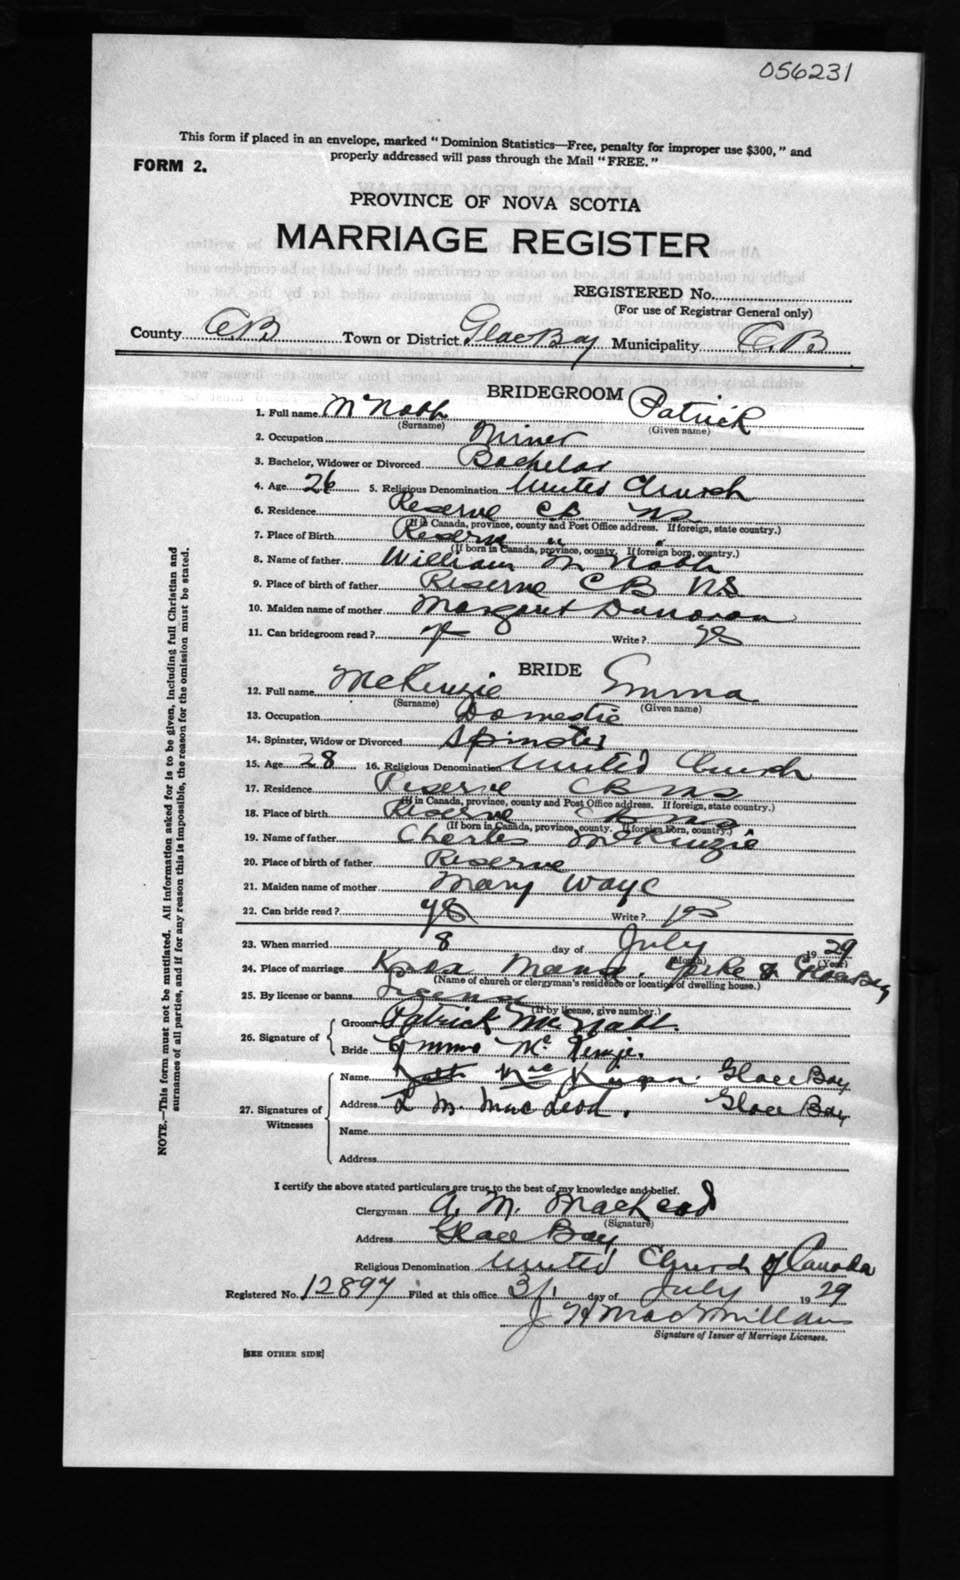 056231
This form if placed in an envelope, marked "Dominion Statistics—Free, penalty for improper use $300," and
properly addressed will pass through the Mail "FREE."
FORM 2.
PROVINCE OF NOVA SCOTIA
MARRIAGE REGISTER
REGISTERED No.
(For use of Registrar General only)
County CB Town or District Glace Bay Municipality C.B
BRIDEGROOM
1. Full name McNabb Patrick
(Surname) (Given name)
2. Occupation Miner
3. Bachelor, Widower or Divorced Bachelor
4. Age 26 5. Religious Denomination United Church
6. Residence Reserve CB NS
(If in Canada, province, county and Post Office address. If foreign, state country.)
7. Place of Birth Reserve " "
(If born in Canada, province, county. If foreign born, country.)
8. Name of father William McNabb
9. Place of birth of father Reserve CB NS
10. Maiden name of mother Margaret Donovan
11. Can bridegroom read? Write? yes
BRIDE
12. Full name McKenzie Emma
(Surname) (Given name)
13. Occupation Domestic
14. Spinster, Widow or Divorced Spinster
15. Age 28 16. Religious Denomination United Church
17. Residence Reserve CB NS
(If in Canada, province, county and Post Office address. If foreign, state country.)
18. Place of birth Reserve CB NS
(If born in Canada, province, county. If foreign born, country.)
19. Name of father Charles McKenzie
20. Place of birth of father Reserve
21. Maiden name of mother Mary Waye
22. Can bride read? yes Write? yes
23. When married 8 day of July 1929
(Month) (Year)
24. Place of marriage Knox Manse, Yorke St Glace Bay
(Name of church or clergyman's residence or location of dwelling house.)
25. By license or banns License
(If by license, give number.)
26. Signature of Groom Patrick McNabb.
Bride Emma McKenzie.
27. Signatures of Witnesses
Name Mac Glace Bay
Address L M. MacLeod. Glace Bay
Name
Address
I certify the above stated particulars are true to the best of my knowledge and belief.
Clergyman A. M. MacLeod
(Signature)
Address Glace Bay
Religious Denomination United Church of Canada
Registered No. 12897 Filed at this office 31 day of July 1929
J H MacMillan
Signature of Issuer of Marriage Licenses.
[SEE OTHER SIDE]
NOTE.—This form must not be mutilated. All information asked for is to be given, including full Christian and
surnames of all parties, and if for any reason this is impossible, the reason for the omission must be stated.